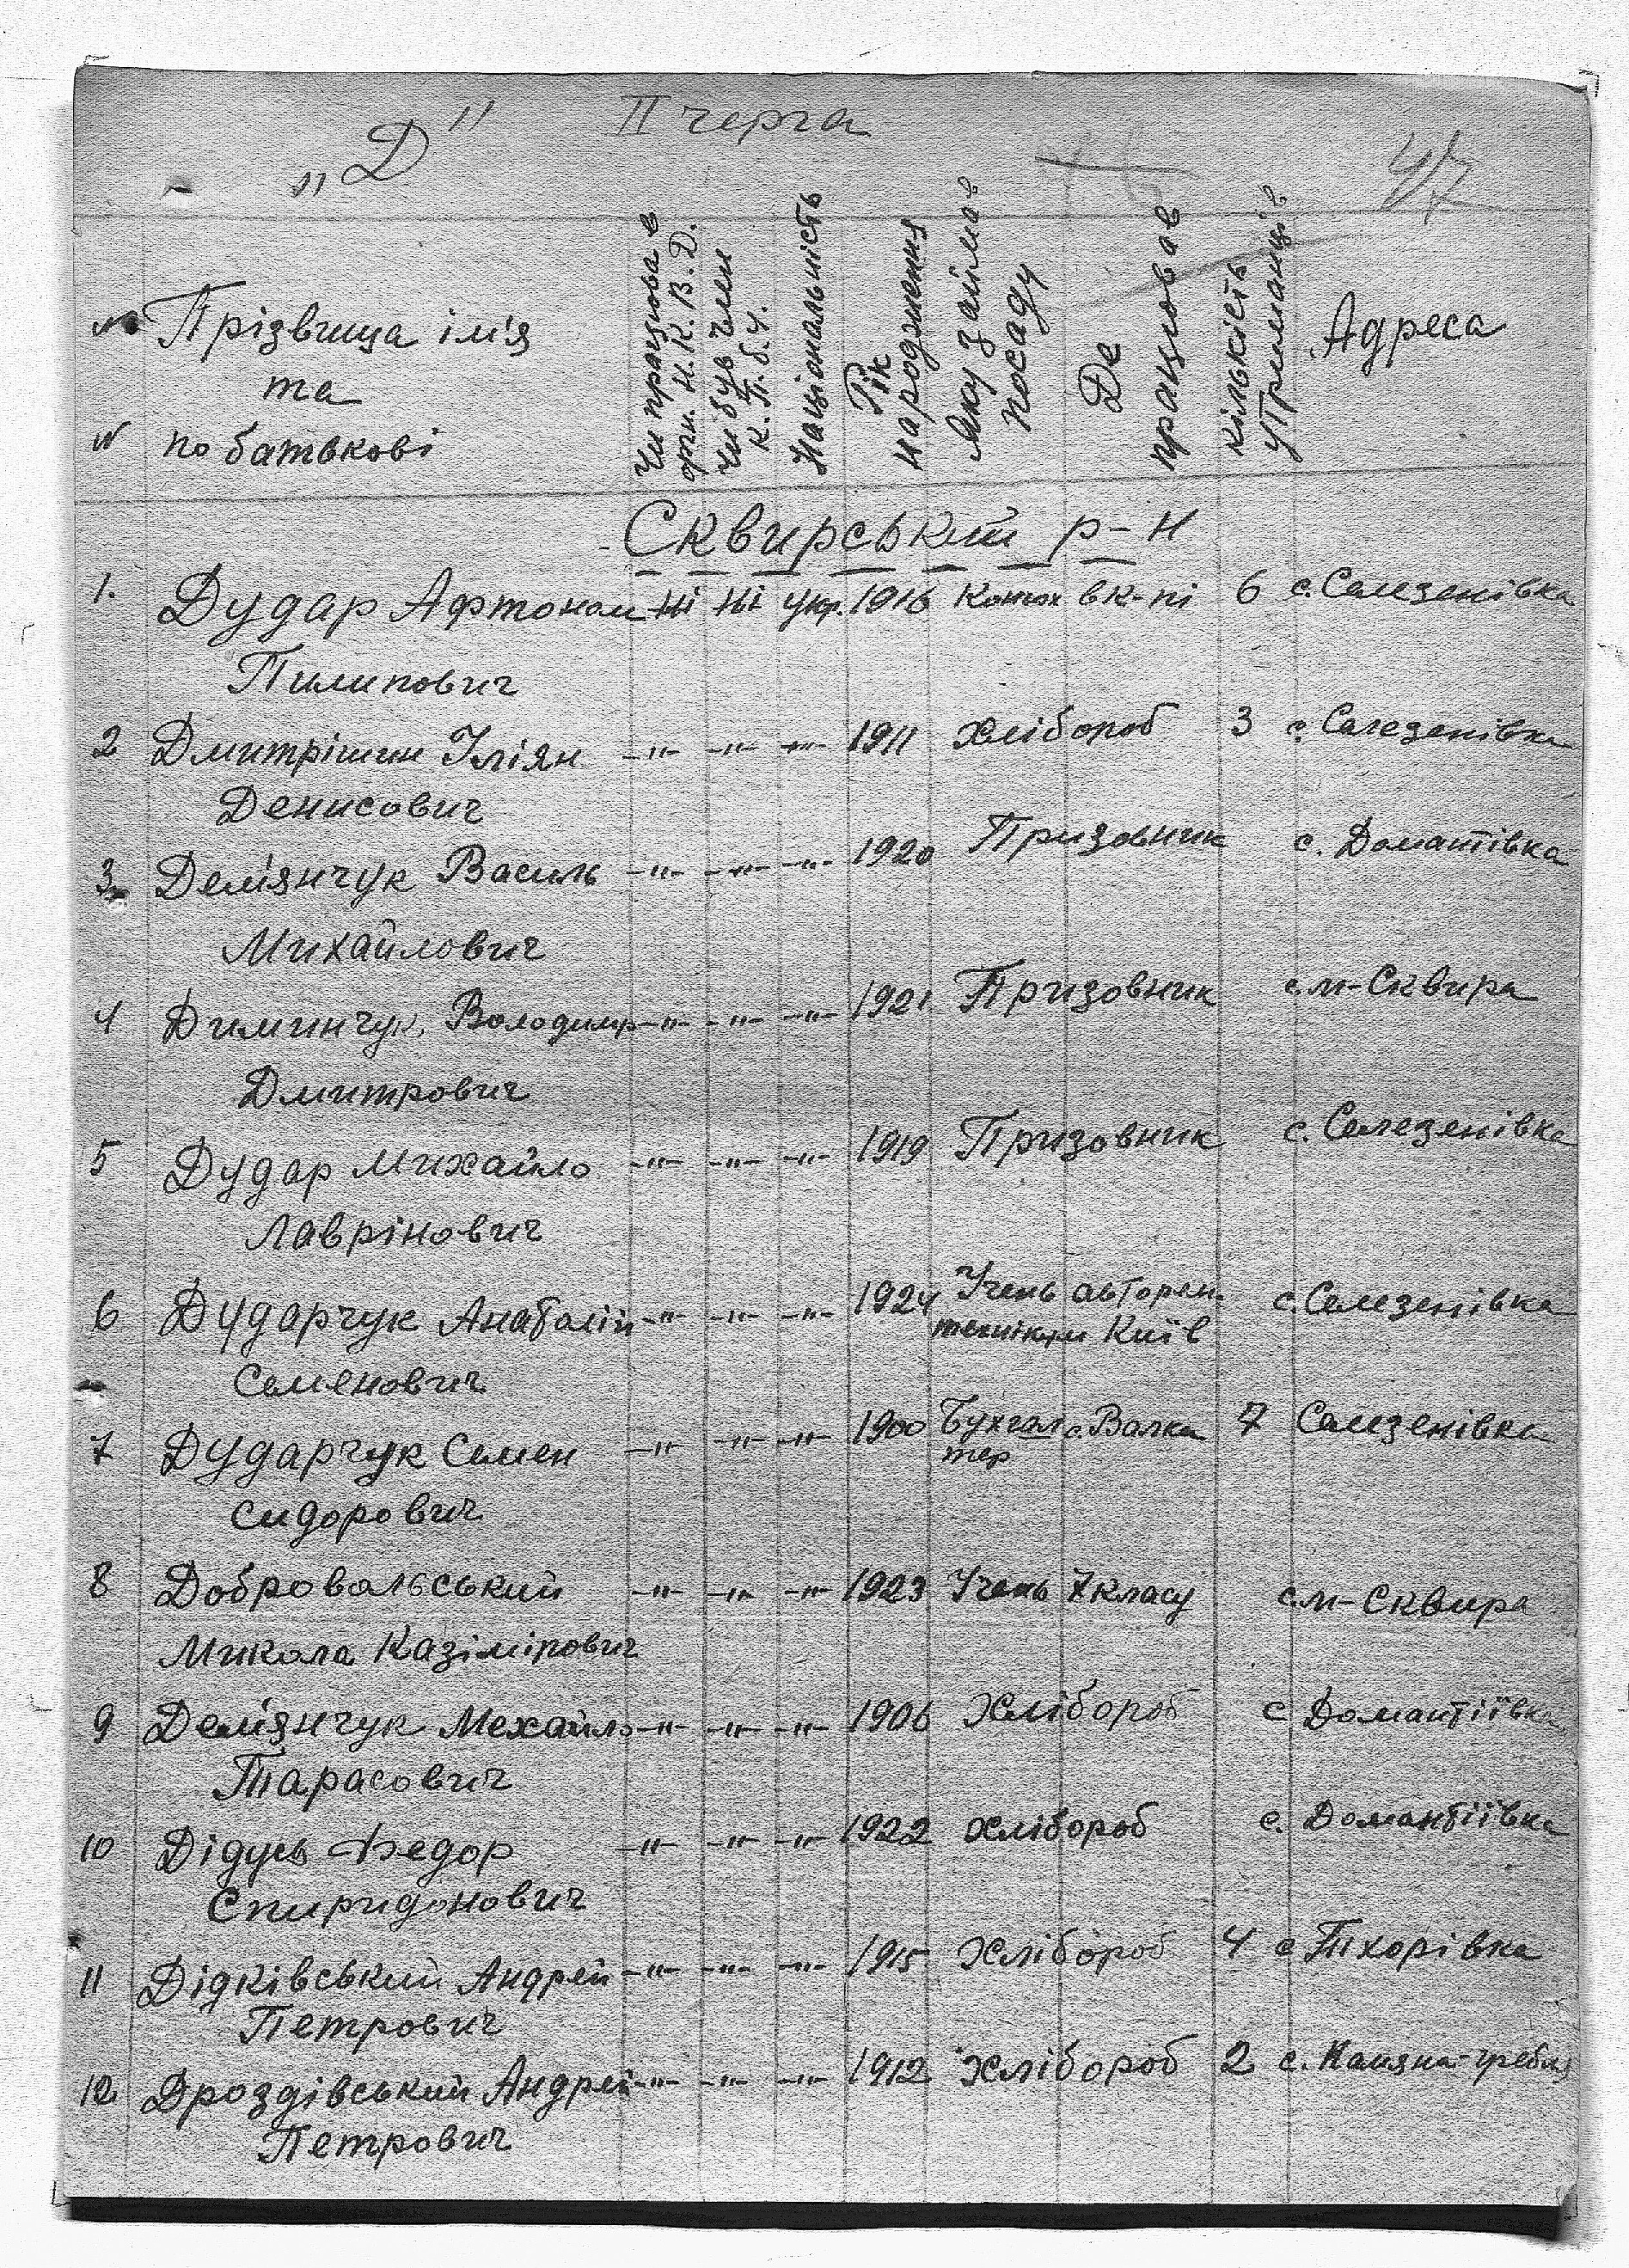 „Д" II черга
47
№ Прізвища ім'я
та
№ по батькові
Чи працював в
орг. Н.К.В.Д.
Чи був член
К.П.б.У.
Національність
Рік
народження
Яку займав
посаду
Де
працював
кількість
утриманців
Адреса
Сквирський р-н
1. Дудар Афтоном Ні Ні укр. 1916 Конюх в к-пі 6 с. Селезенівка
Пилипович
2 Дмитрішин Іліян -"- -"- -"- 1911 Хлібороб 3 с. Селезенівка
Денисович
3 Дем'янчук Василь -"- -"- -"- 1920 Призовник с. Домантівка
Михайлович
4 Диминчук Володимир -"- -"- -"- 1921 Призовник с. м-Сквира
Дмитрович
5 Дудар Михайло -"- -"- -"- 1919 Призовник с. Селезенівка
Лаврінович
6 Дударчук Анатолій -"- -"- -"- 1924 Учень авторем. с. Селезенівка
технікум Київ
Семенович
7 Дударчук Семен -"- -"- -"- 1900 Бухгал с. Валки 7 Селезенівка
тер
Сидорович
8 Добровальський -"- -"- -"- 1923 Учень 7 класу с. м-Сквира
Микола Казімірович
9 Дем'янчук Мехайло -"- -"- -"- 1906 Хлібороб с Домантіївка
Тарасович
10 Дідусь Федор -"- -"- -"- 1922 Хлібороб с. Домантіївка
Спиридонович
11 Дідківський Андрей -"- -"- -"- 1915 Хлібороб 4 с Тхорівка
Петрович
12 Дроздівський Андрей -"- -"- -"- 1912 Хлібороб 2 с. Камяна-гребля
Петрович